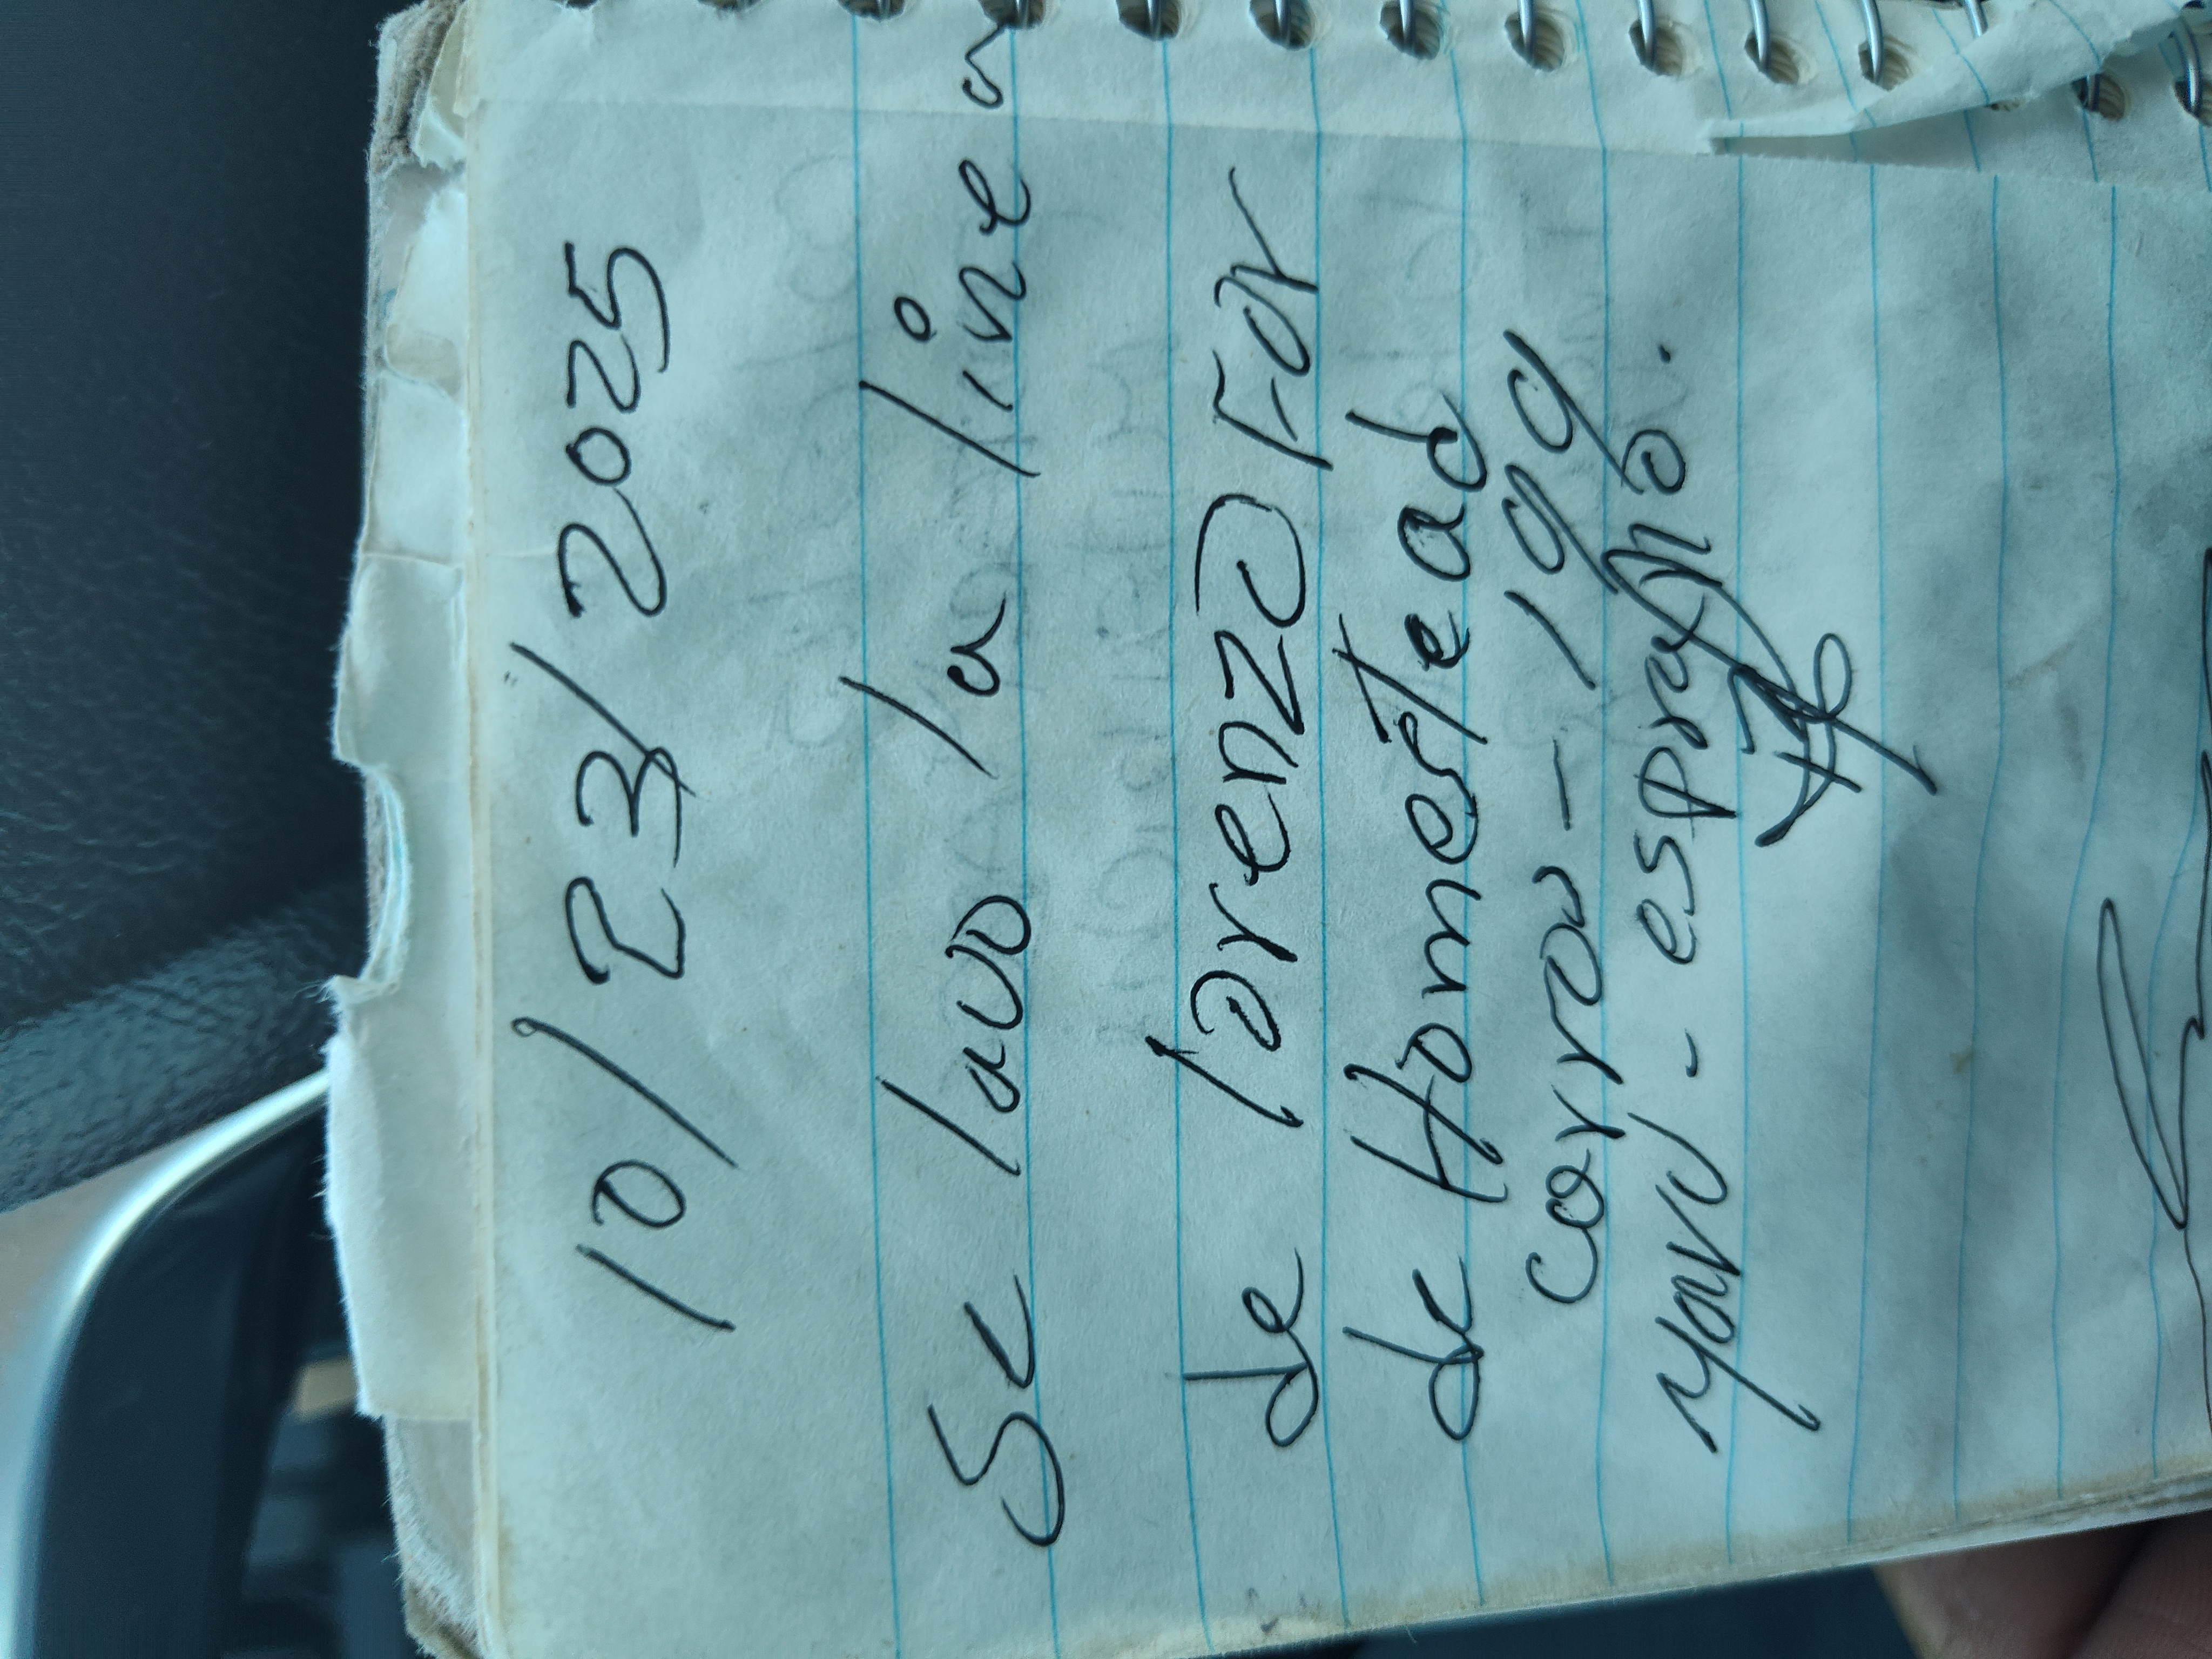 10/23/2025
Se lavo la linea
de lorenzo For
de Homestead
corrow - 199
yovv - esprayio.